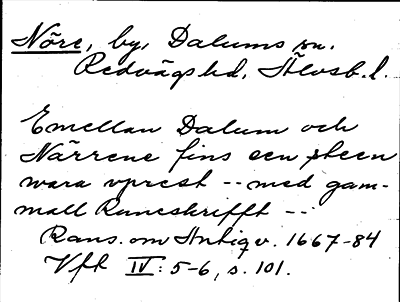 Nöre, by, Dalums sn.
Redvägs hd, Älvsb. l.
Emellan Dalum och
Närrene fins een steen
wara vprest -- med gam-
mall Runeskrifft --
Rans. om Antiqv. 1667-84
Vft IV: 5-6, s. 101.